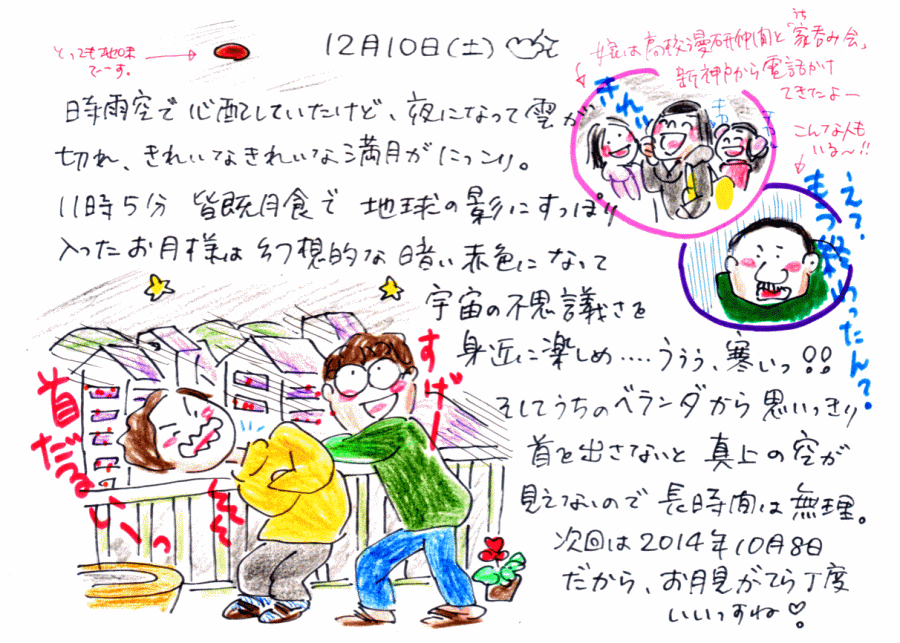 とっても地味
でーす。
12月10日(土)
娘は高校漫研仲間と「家呑み会」
うち
新神戸から電話がけ
てきたよー
きれい
こんな人も
いる〜!!
え?もう終わったん?
時雨空で心配していたけど、夜になって雲が
切れ、きれいなきれいな満月がにっこり。
11時5分 皆既月食で 地球の影にすっぽり
入ったお月様は幻想的な暗い赤色になって
宇宙の不思議さを
身近に楽しめ....ううぅ、寒いっ!!
そしてうちのベランダから思いっきり
首を出さないと 真上の空が
見えないので 長時間は無理。
次回は2014年10月8日
だから、お月見がてら丁度
いいっすね♡
すげー
首だるいっ